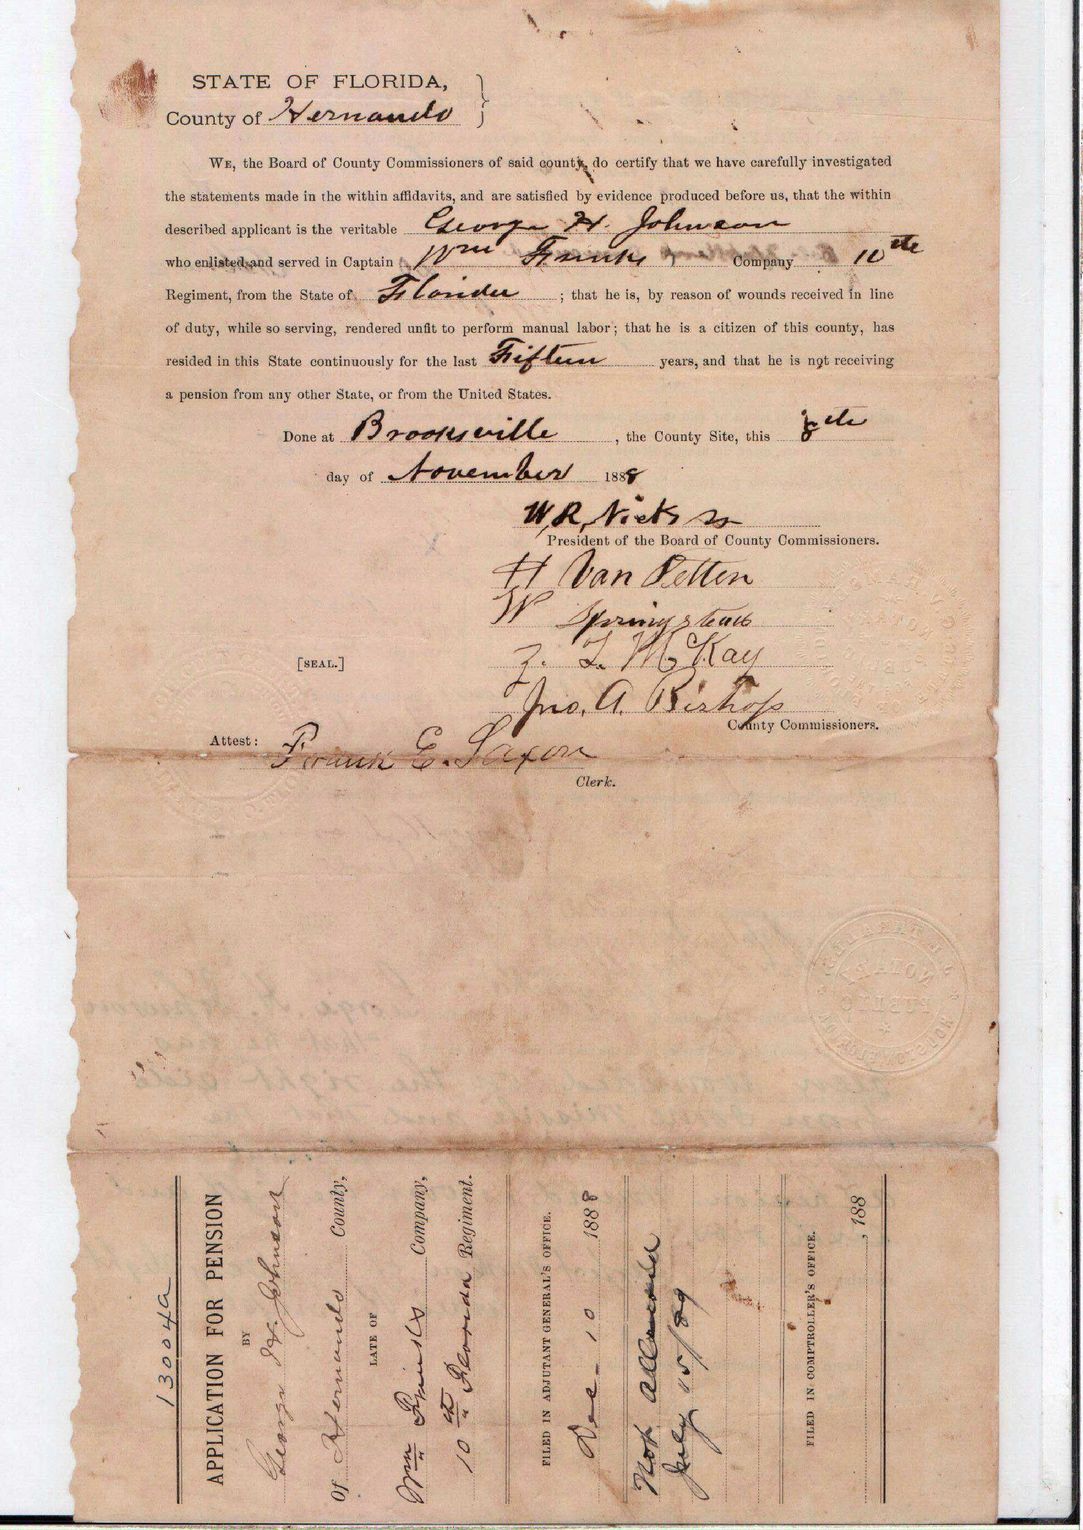 STATE OF FLORIDA,
County of Hernando
WE, the Board of County Commissioners of said county, do certify that we have carefully investigated
the statements made in the within affidavits, and are satisfied by evidence produced before us, that the within
described applicant is the veritable George H. Johnson
who enlisted and served in Captain Wm Company 10th
Regiment, from the State of Florida ; that he is, by reason of wounds received in line
of duty, while so serving, rendered unfit to perform manual labor; that he is a citizen of this county, has
resided in this State continuously for the last Fifteen years, and that he is not receiving
a pension from any other State, or from the United States.
Done at Brooksville , the County Site, this 8th
day of November 1888
W, R, Nicks
President of the Board of County Commissioners.
H Van Petten
W Springstead
Z. T. McKay
[SEAL.]
Jno, A. Bishop
County Commissioners.
Attest: Frank E. Saxon
Clerk.
NOTARY
PUBLIC
13004a
APPLICATION FOR PENSION
BY
George H. Johnson
Of Hernando County,
LATE OF
Wm Company,
10th Florida Regiment.
FILED IN ADJUTANT GENERAL'S OFFICE.
Dec - 10 1888
Not Allowed
July 15/89
FILED IN COMPTROLLER'S OFFICE.
, 188